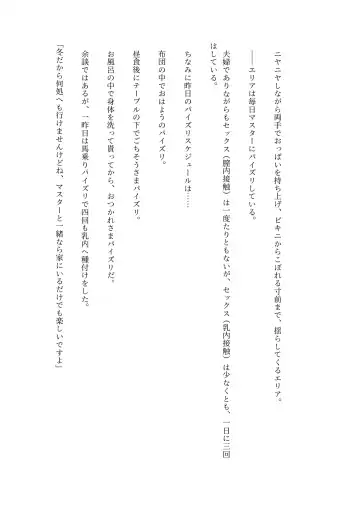 ニヤニヤしながら両手でおっぱいを持ち上げ、ビキニからこぼれる寸前まで、揺らしてくるエリア。
――エリアは毎日マスターにパイズリしている。
夫婦でありながらもセックス（膣内接触）は一度たりともないが、セックス（乳内接触）は少なくとも、一日に三回
はしている。
ちなみに昨日のパイズリスケジュールは……
布団の中でおはようのパイズリ。
昼食後にテーブルの下でごちそうさまパイズリ。
お風呂の中で身体を洗って貰ってから、おつかれさまパイズリだ。
余談ではあるが、一昨日は馬乗りパイズリで四回も乳内へ種付けをした。
「冬だから何処へも行けませんけどね、マスターと一緒なら家にいるだけでも楽しいですよ」